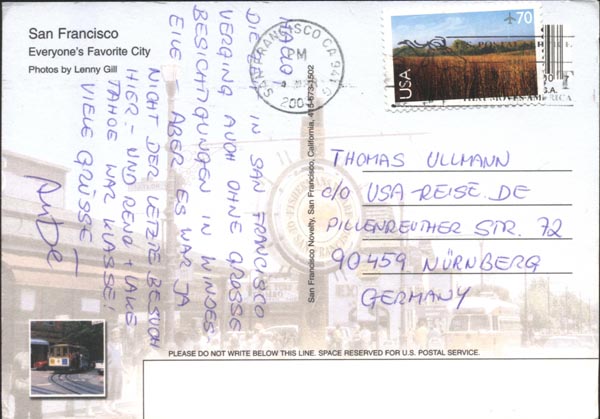 San Francisco
Everyone's Favorite City
Photos by Lenny Gill
HALLO!
DIE ZEIT IN SAN FRANCISCO
VERGING AUCH OHNE GROSSE
BESICHTIGUNGEN IN WINDES-
EILE! ABER ES WAR JA
NICHT DER LETZTE BESUCH
HIER - UND RENO + LAKE
TAHOE WAR KLASSE!
VIELE GRÜSSE -
San Francisco Novelty, San Francisco, California, 415-673-1502
SAN FRANCISCO CA 941
PM
200
70
USA
THAT MOVES AMERICA
THOMAS ULLMANN
c/o USA-REISE.DE
PILLENREUTHER STR. 72
90459 NÜRNBERG
GERMANY
PLEASE DO NOT WRITE BELOW THIS LINE. SPACE RESERVED FOR U.S. POSTAL SERVICE.